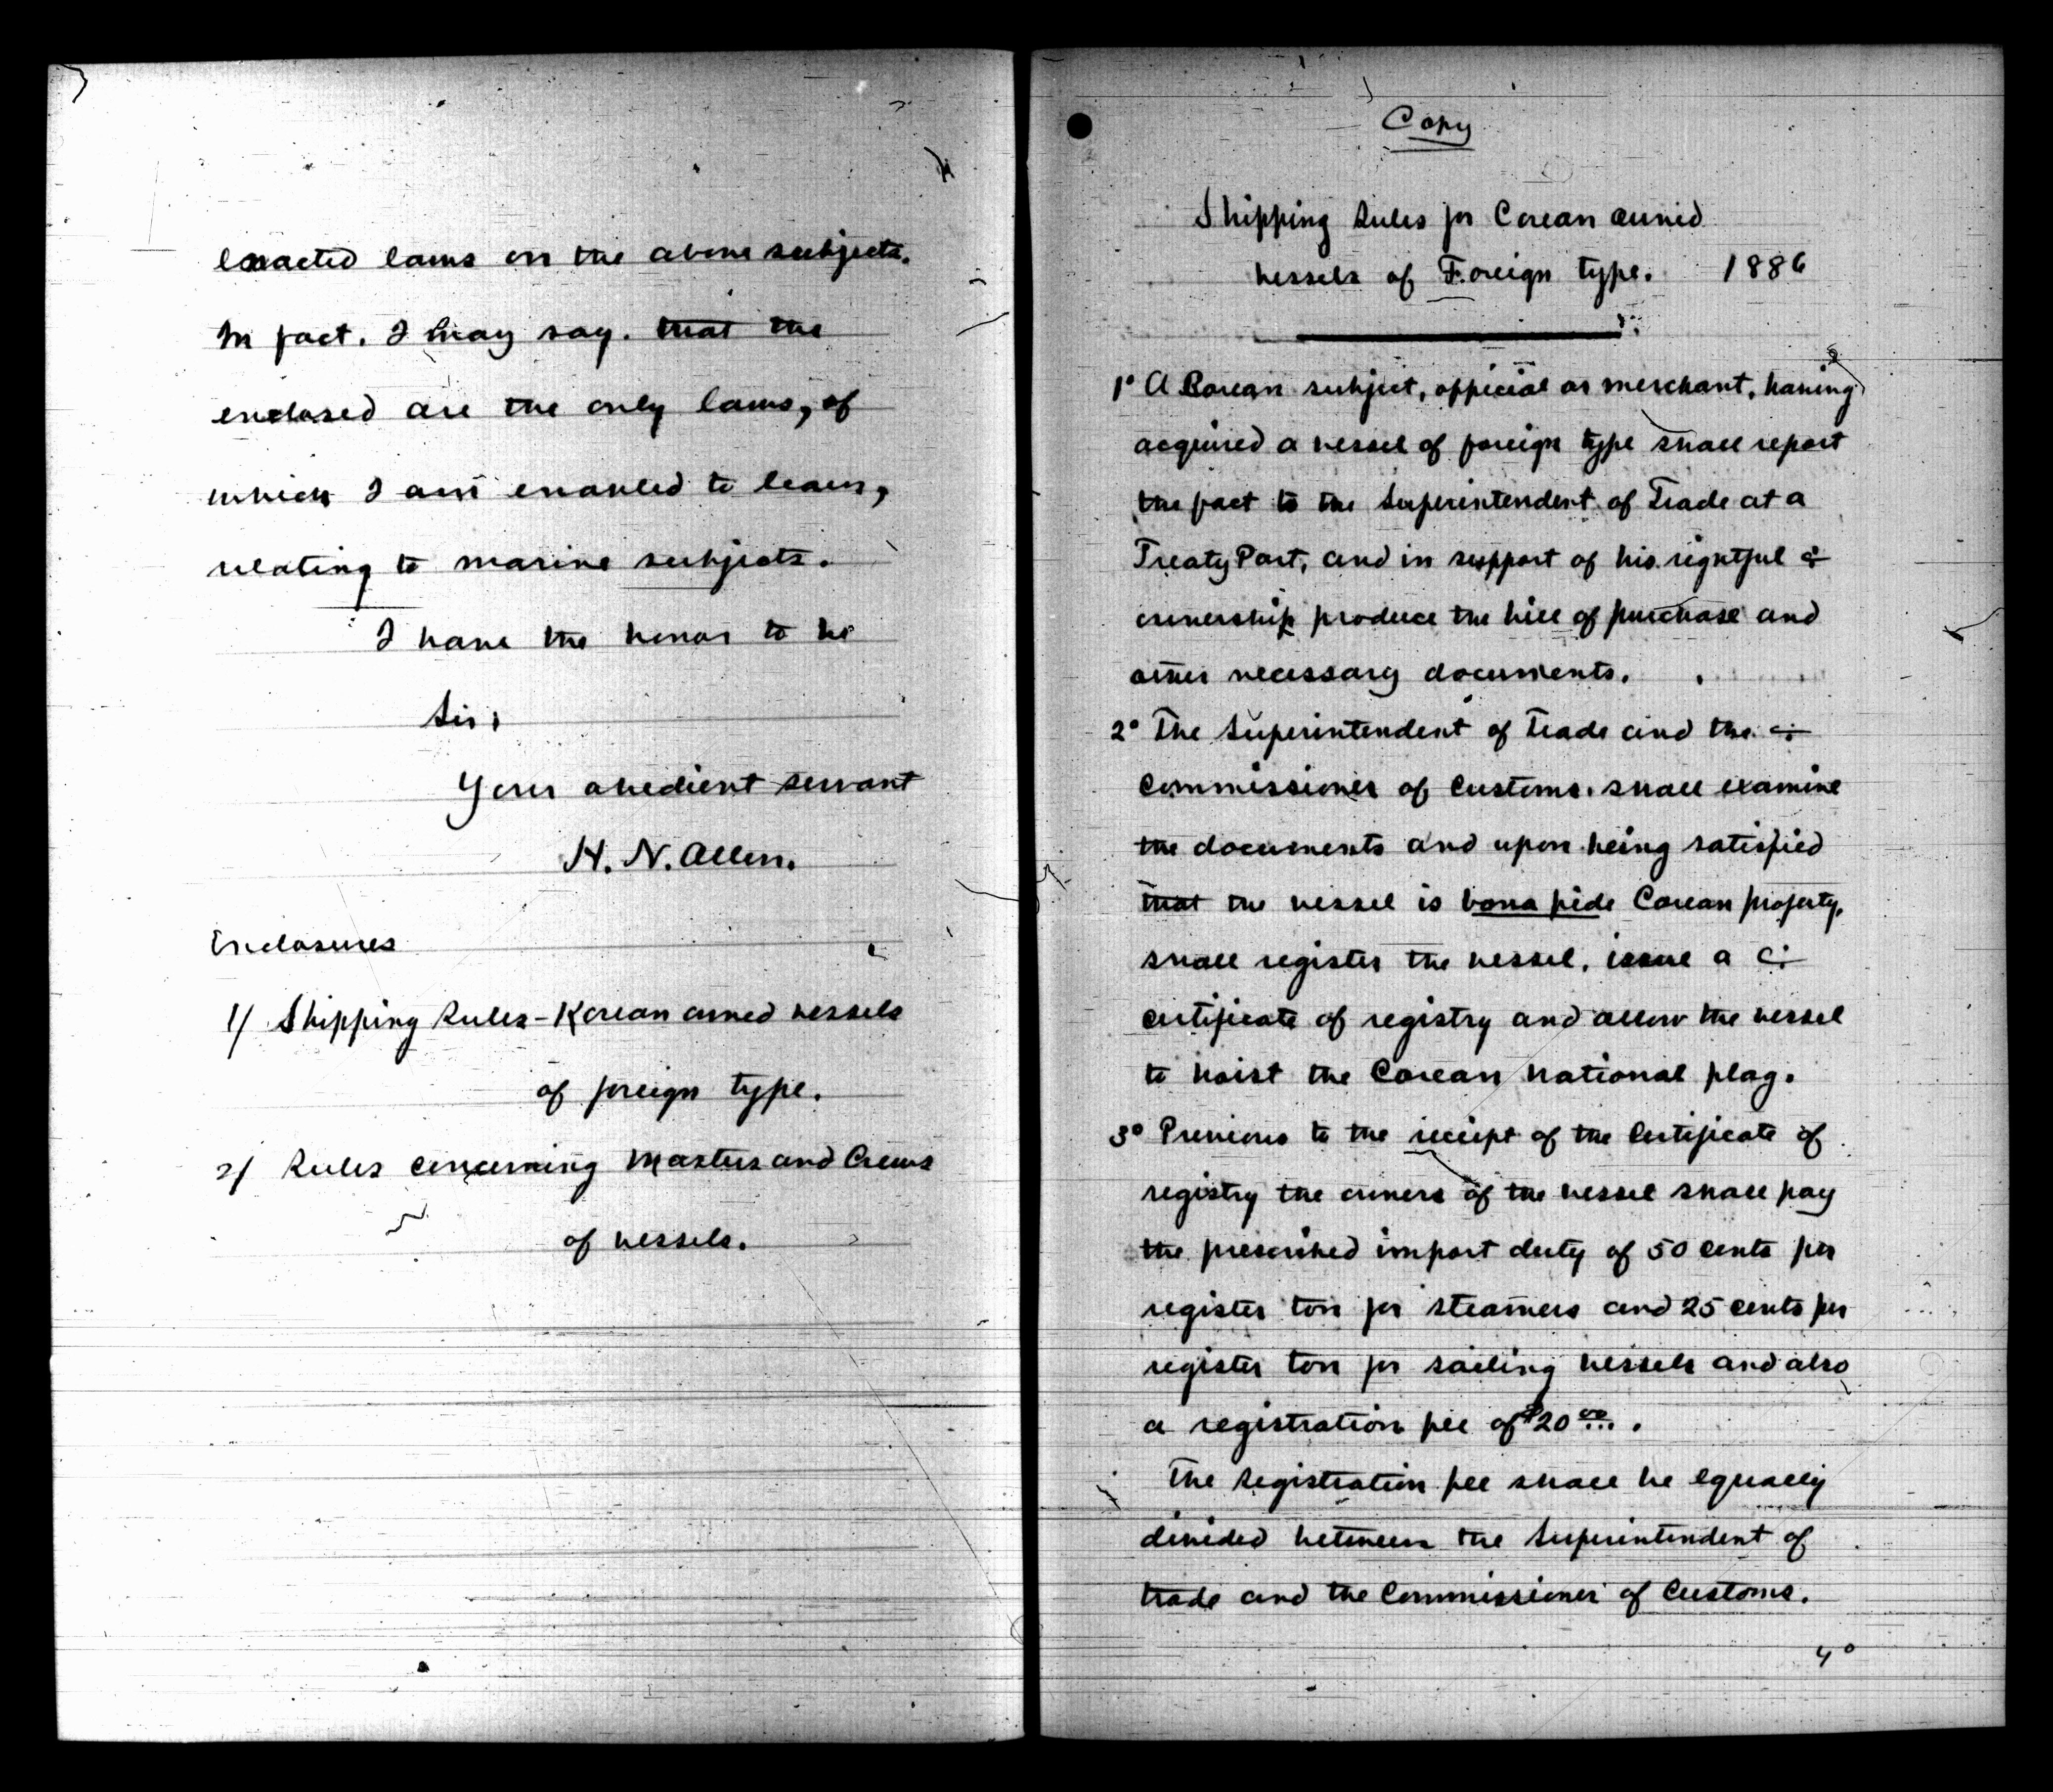 enacted laws on the above subjects.
In fact. I may say. that the
enclosed are the only laws, of
which I am enabled to learn,
relating to marine subjects.
I have the honor to be
Sir;
Your obedient servant
H. N. Allen.
Enclosures
1/ Shipping Rules - Korean owned vessels
of foreign type.
2/ Rules concerning Masters and Crews
of vessels.
Copy
Shipping Rules for Corean owned
vessels of Foreign type. 1886
1° A Corean subject, official or merchant, having
acquired a vessel of foreign type shall report
the fact to the Superintendent of Trade at a
Treaty Port, and in support of his rightful
ownership produce the bill of purchase and
other necessary documents.
2° The Superintendent of Trade and the
Commissioner of Customs. shall examine
the documents and upon being satisfied
that the vessel is bona fide Corean property,
shall register the vessel, issue a
certificate of registry and allow the vessel
to hoist the Corean national flag.
3° Previous to the receipt of the Certificate of
registry the owners of the vessel shall pay
the prescribed import duty of 50 cents per
register ton for steamers and 25 cents per
register ton for sailing vessels and also
a registration fee of $20 00.
The registration fee shall be equally
divided between the Superintendent of
trade and the Commissioner of Customs.
4°